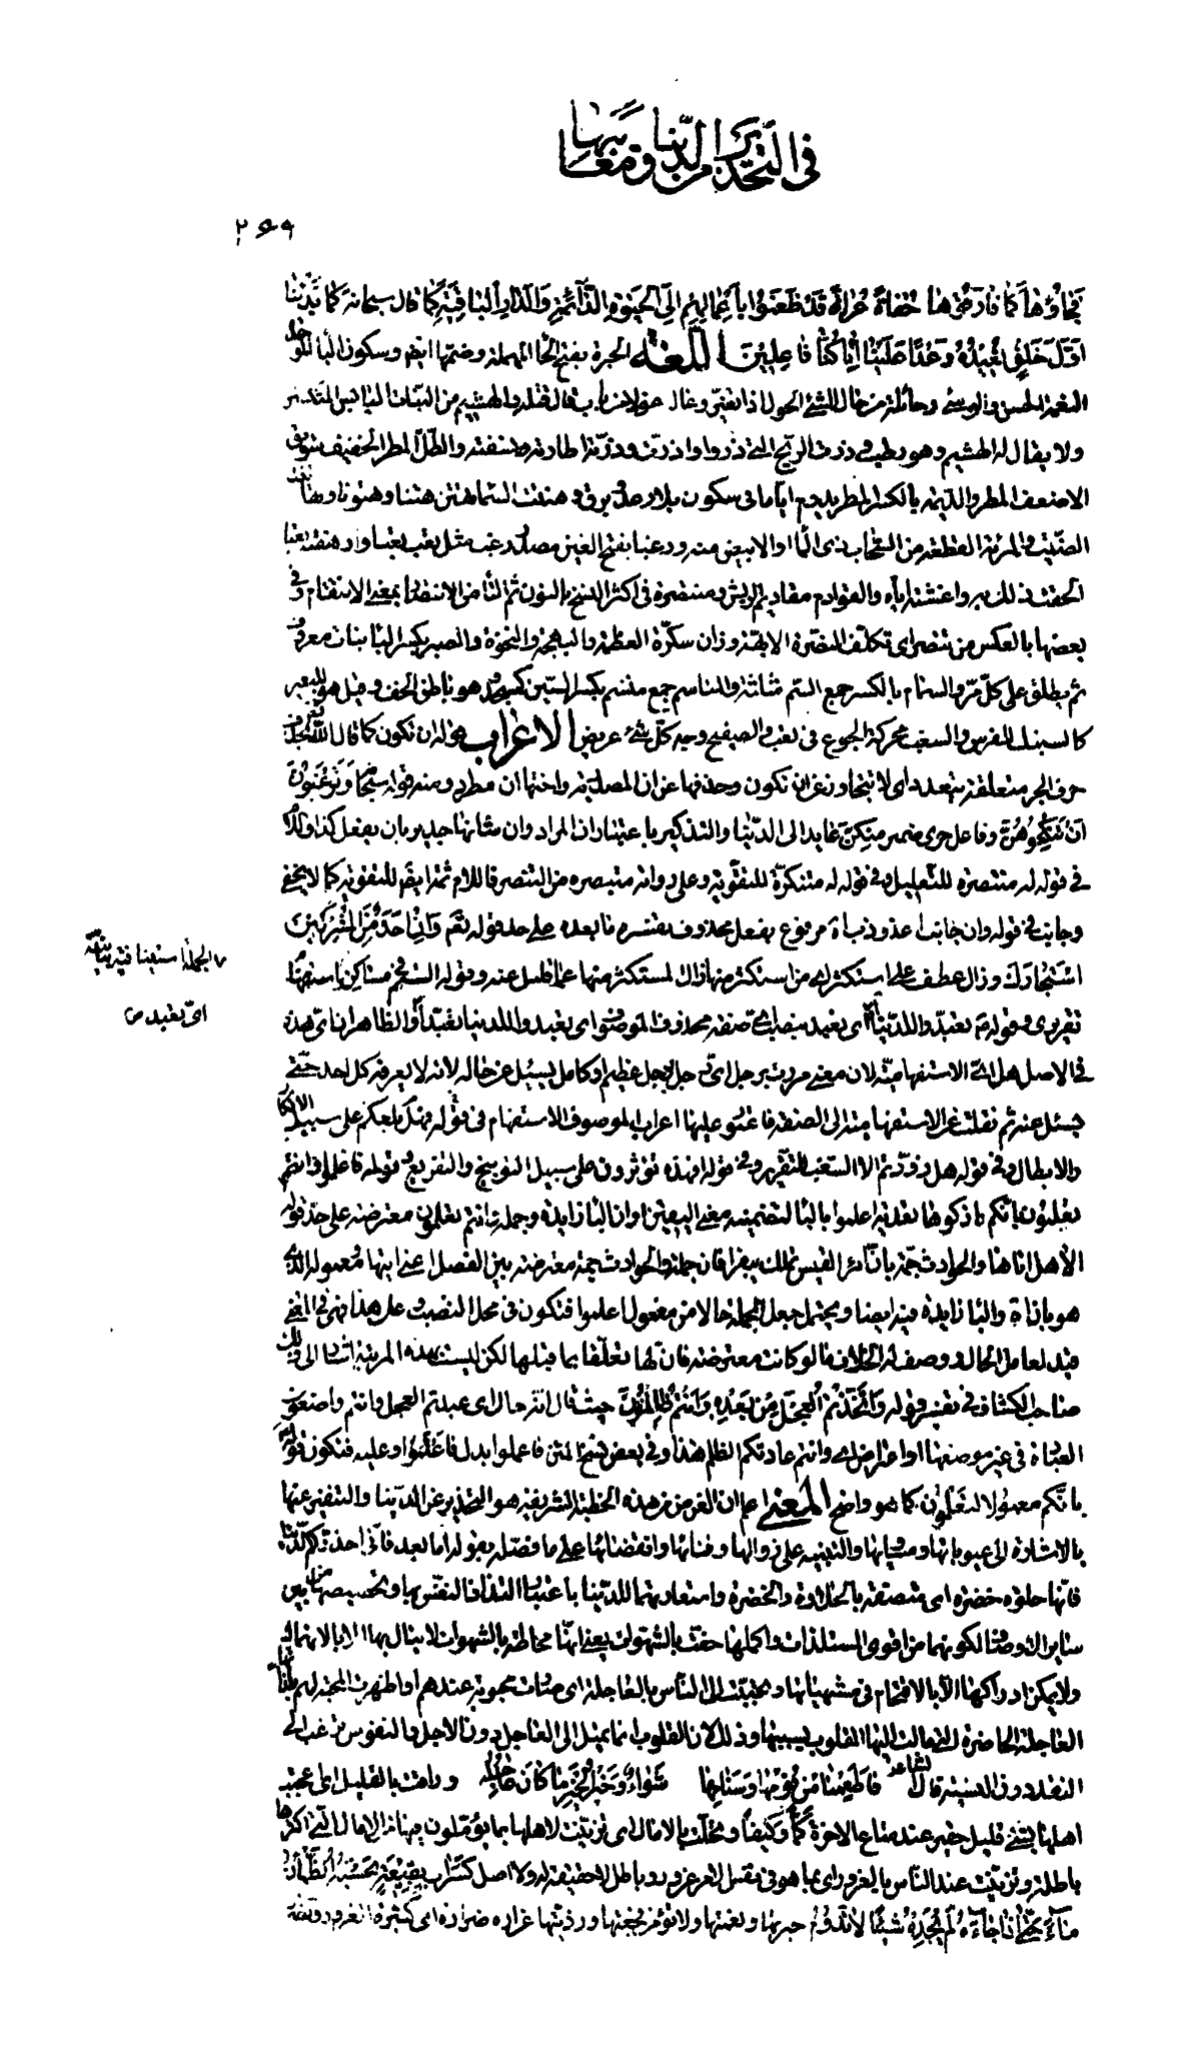 في التحذير من الدنيا ومعايبها
۲۶۹
فجاؤها كما فارقوها حفاة عراة قد ظعنوا باعمالهم الى الحيوة الدائمة والدار الباقية كما قال سبحانه كما بدأنا
اول خلق نعيده وعدا علينا انا كنا فاعلين اللغة الحبرة بفتح الحاء المهملة وضمها ايضا وسكون الباء الموحدة
النعمة والحسن والوشي وحائلة من حال الشيء يحول اذا تغير وغاله غولا من باب قال قتله والهشيم من النبات اليابس المتكسر
ولا يقال له الهشيم وهو رطب و ذرت الريح الشيء ذروا واذرت وذرته اطارته ونسفته والطل المطر الخفيف
الاضعف المطر والديمة بالكسر المطر يدوم اياما في سكون بلا رعد وبرق و هتنت السماء تهتن هتنا وهتونا
الصبت والمزنة القطعة من السحاب ذي الماء او الابيض منه ورغبا بفتح الغين مصدر رغب مثل تعب تعبا وارهقته تعبا
الحقت ذلك به واغشته اياه والقوادم مقاديم الريش ومنتصرة في اكثر النسخ بالنون ثم التاء من الانتصار بمعنى الانتقام وفي
بعضها بالعكس من تنصر اي تكلف النصرة الابهة وزان سكرة العظمة والبهجة والنخوة والصبر بكسر الباء نبات معروف
ثم يطلق على كل مر والسمام بالكسر جمع السم مثلثة والمناسم جمع منسم بكسر السين كمسجد وهو باطن الخف وقيل هو للبعير
كالسنبك للفرس والسغب محركة الجوع في تعب والصفيح وجه كل شيء عريض الاعراب قوله ان تكون كما قال الله تعالى
حرف الجر متعلقة بتعدو اي لا تتجاوز عن ان تكون وحذفها عن ان المصدرية واختها ان مطرد ومنه قوله سبحانه وترغبون
ان تنكحوهن وفاعل حري ضمير مستكن عايد الى الدنيا والتذكير باعتبار ان المراد وان شانها جدير بان يفعل كذا واللام
في قوله له منتصرة للتعليل وفي قوله له متنكرة للتقوية وعلى رواية متنصرة من التنصر فاللام ثمة ايضا للتقوية كما لا يخفى
وجانب في قوله وان جانب اعذوذب مرفوع بفعل محذوف يفسره ما بعده على حد قوله تعالى وان احد من المشركين
استجارك
تقريري وقوله تعبدوا للدنيا اي تعبد
في الاصل هل اي الاستفهامية لان معنى مررت برجل اي رجل برجل عظيم او كامل يسئل عن حاله لانه لا يعرفه كل احد حتى
يسئل عنه ثم نقلت عن الاستفهامية الى الصفة فاعتور عليها اعراب الموصوف الاستفهام في قوله فهل بلغكم على سبيل الانكار
والابطال وفي قوله هل زودتهم الا السغب للتقرير وفي قوله افهذه تؤثرون على سبيل التوبيخ والتقريع وقوله فاعلموا وانتم
تعلمون بانكم تاركوها تعدية اعلموا بالباء لتضمينه معنى اليقين او ان الباء زايدة وجملة وانتم تعلمون معترضة على حد قوله
الا هل اتاها والحوادث جمة بان امرء القيس بن تملك بيقرا فان جملة والحوادث جمة معترضة بين الفعل اعني اتيها ومعموله الذي
هو بان اه والباء زايدة فيه ايضا ويحتمل جعل الجملة حالا من مفعول اعلموا فتكون في محل النصب وعلى هذا فهي في المعنى
قيد لعامل الحال ووصف له بخلاف ما لو كانت معترضة فان لها تعلقا بما قبلها لكن ليست بهذه المرتبة اشار الى ذلك
صاحب الكشاف في تفسير قوله واتخذتم العجل من بعده وانتم ظالمون حيث قال انه حال اي عبدتم العجل وانتم واضعون
العبادة في غير موضعها او اعتراض اي وانتم عادتكم الظلم هذا وفي بعض نسخ المتن فاعملوا بدل فاعلموا وعليه فتكون قوله
بانكم معمولا لتعلمون كما هو واضح المعنى اعلم ان الغرض من هذه الخطبة الشريفة هو التحذير عن الدنيا والتنفير عنها
بالاشارة الى عيوباتها ومساويها والتنبيه على زوالها وفنائها وانقضائها على ما فصله بقوله اما بعد فاني احذركم الدنيا
فانها حلوة خضرة اي متصفة بالحلاوة والخضرة واستعارتهما للدنيا باعتبار التذاذ النفس بها وتخصيصهما من بين
ساير الاوصاف لكونهما من اقوى المستلذات واكملها حفت بالشهوات يعني انها محاطة بالشهوات لا ينال بها الا بالانهماك فيها
ولا يمكن ادراكها الا بالاقتحام في مشتهياتها وتحببت الى الناس بالعاجلة اي صارت محبوبة عندهم او اظهرت المحبة لهم بلذاتها
العاجلة الحاضرة التي مالت اليها القلوب بسببها وذلك لان القلوب انما يميل الى العاجل دون الاجل والنفوس ترغب الى
النقد دون النسية قال الشاعر فاطعمنا من فومها وسنامها شواء وخير الخير ما كان عاجله وراقت بالقليل اي اعجبت
اهلها بشيء قليل حقير عند متاع الاخرة كما وكيفا وتحلت بالامال اي تزينت لاهلها بما يؤملون فيها من الامال التي اكثرها
باطلة وتزينت عند الناس بالغرور اي بما هو في نفس الامر غرور وباطل لا حقيقة له ولا اصل كسراب بقيعة يحسبه الظمان
ماء حتى اذا جاءه لم يجده شيئا لا تدوم حبرتها ونعمتها ولا تؤمن فجعتها ورزيتها غرارة ضرارة اي كثيرة الغرور
والجملة استينافية بيانية
اي تعبد